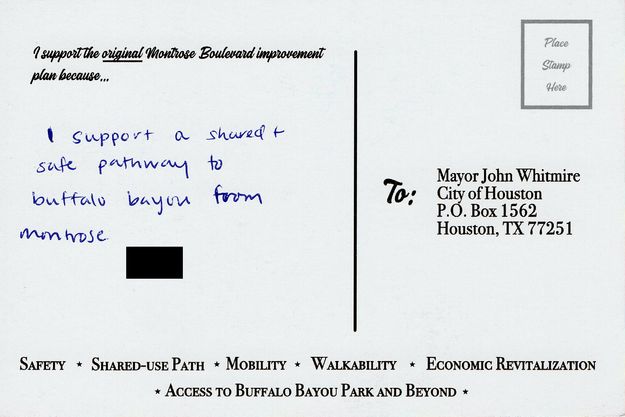 I support the original Montrose Boulevard improvement
plan because...
I support a shared +
safe pathway to
buffalo bayou from
montrose.
Place
Stamp
Here
To:
Mayor John Whitmire
City of Houston
P.O. Box 1562
Houston, TX 77251
SAFETY ⋆ SHARED-USE PATH ⋆ MOBILITY ⋆ WALKABILITY ⋆ ECONOMIC REVITALIZATION
⋆ ACCESS TO BUFFALO BAYOU PARK AND BEYOND ⋆